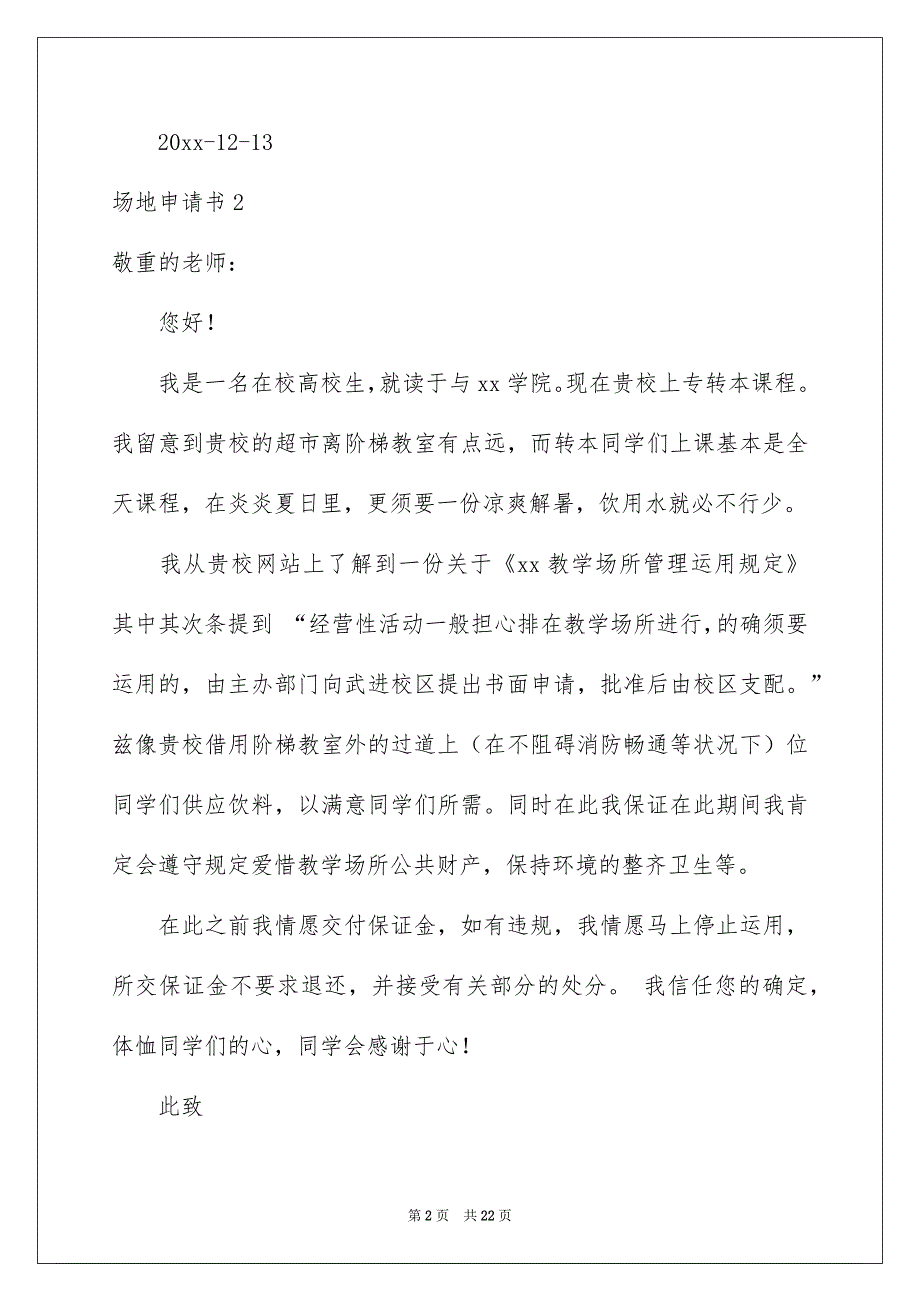 20xx-12-13
场地申请书2
敬重的老师：
您好！
我是一名在校高校生,就读于与xx学院。现在贵校上专转本课程。
我留意到贵校的超市离阶梯教室有点远，而转本同学们上课基本是全
天课程，在炎炎夏日里，更须要一份凉爽解暑，饮用水就必不行少。
我从贵校网站上了解到一份关于《xx教学场所管理运用规定》
其中其次条提到 “经营性活动一般担心排在教学场所进行,的确须要
运用的，由主办部门向武进校区提出书面申请，批准后由校区支配。”
兹像贵校借用阶梯教室外的过道上（在不阻碍消防畅通等状况下）位
同学们供应饮料，以满意同学们所需。同时在此我保证在此期间我肯
定会遵守规定爱惜教学场所公共财产，保持环境的整齐卫生等。
在此之前我情愿交付保证金，如有违规，我情愿马上停止运用，
所交保证金不要求退还，并接受有关部分的处分。 我信任您的确定，
体恤同学们的心，同学会感谢于心！
此致
第 2 页 共 22 页